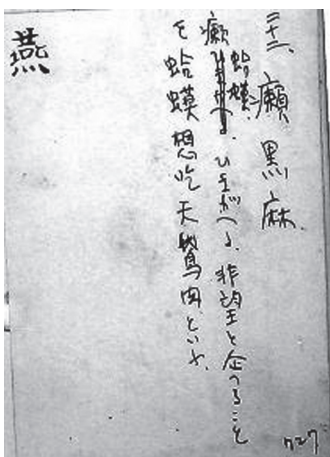 三十二、癩黒麻
癩蛤蟆、ひきがへる、非望を企つること
を蛤蟆想吃天鵞肉といふ、
燕
727